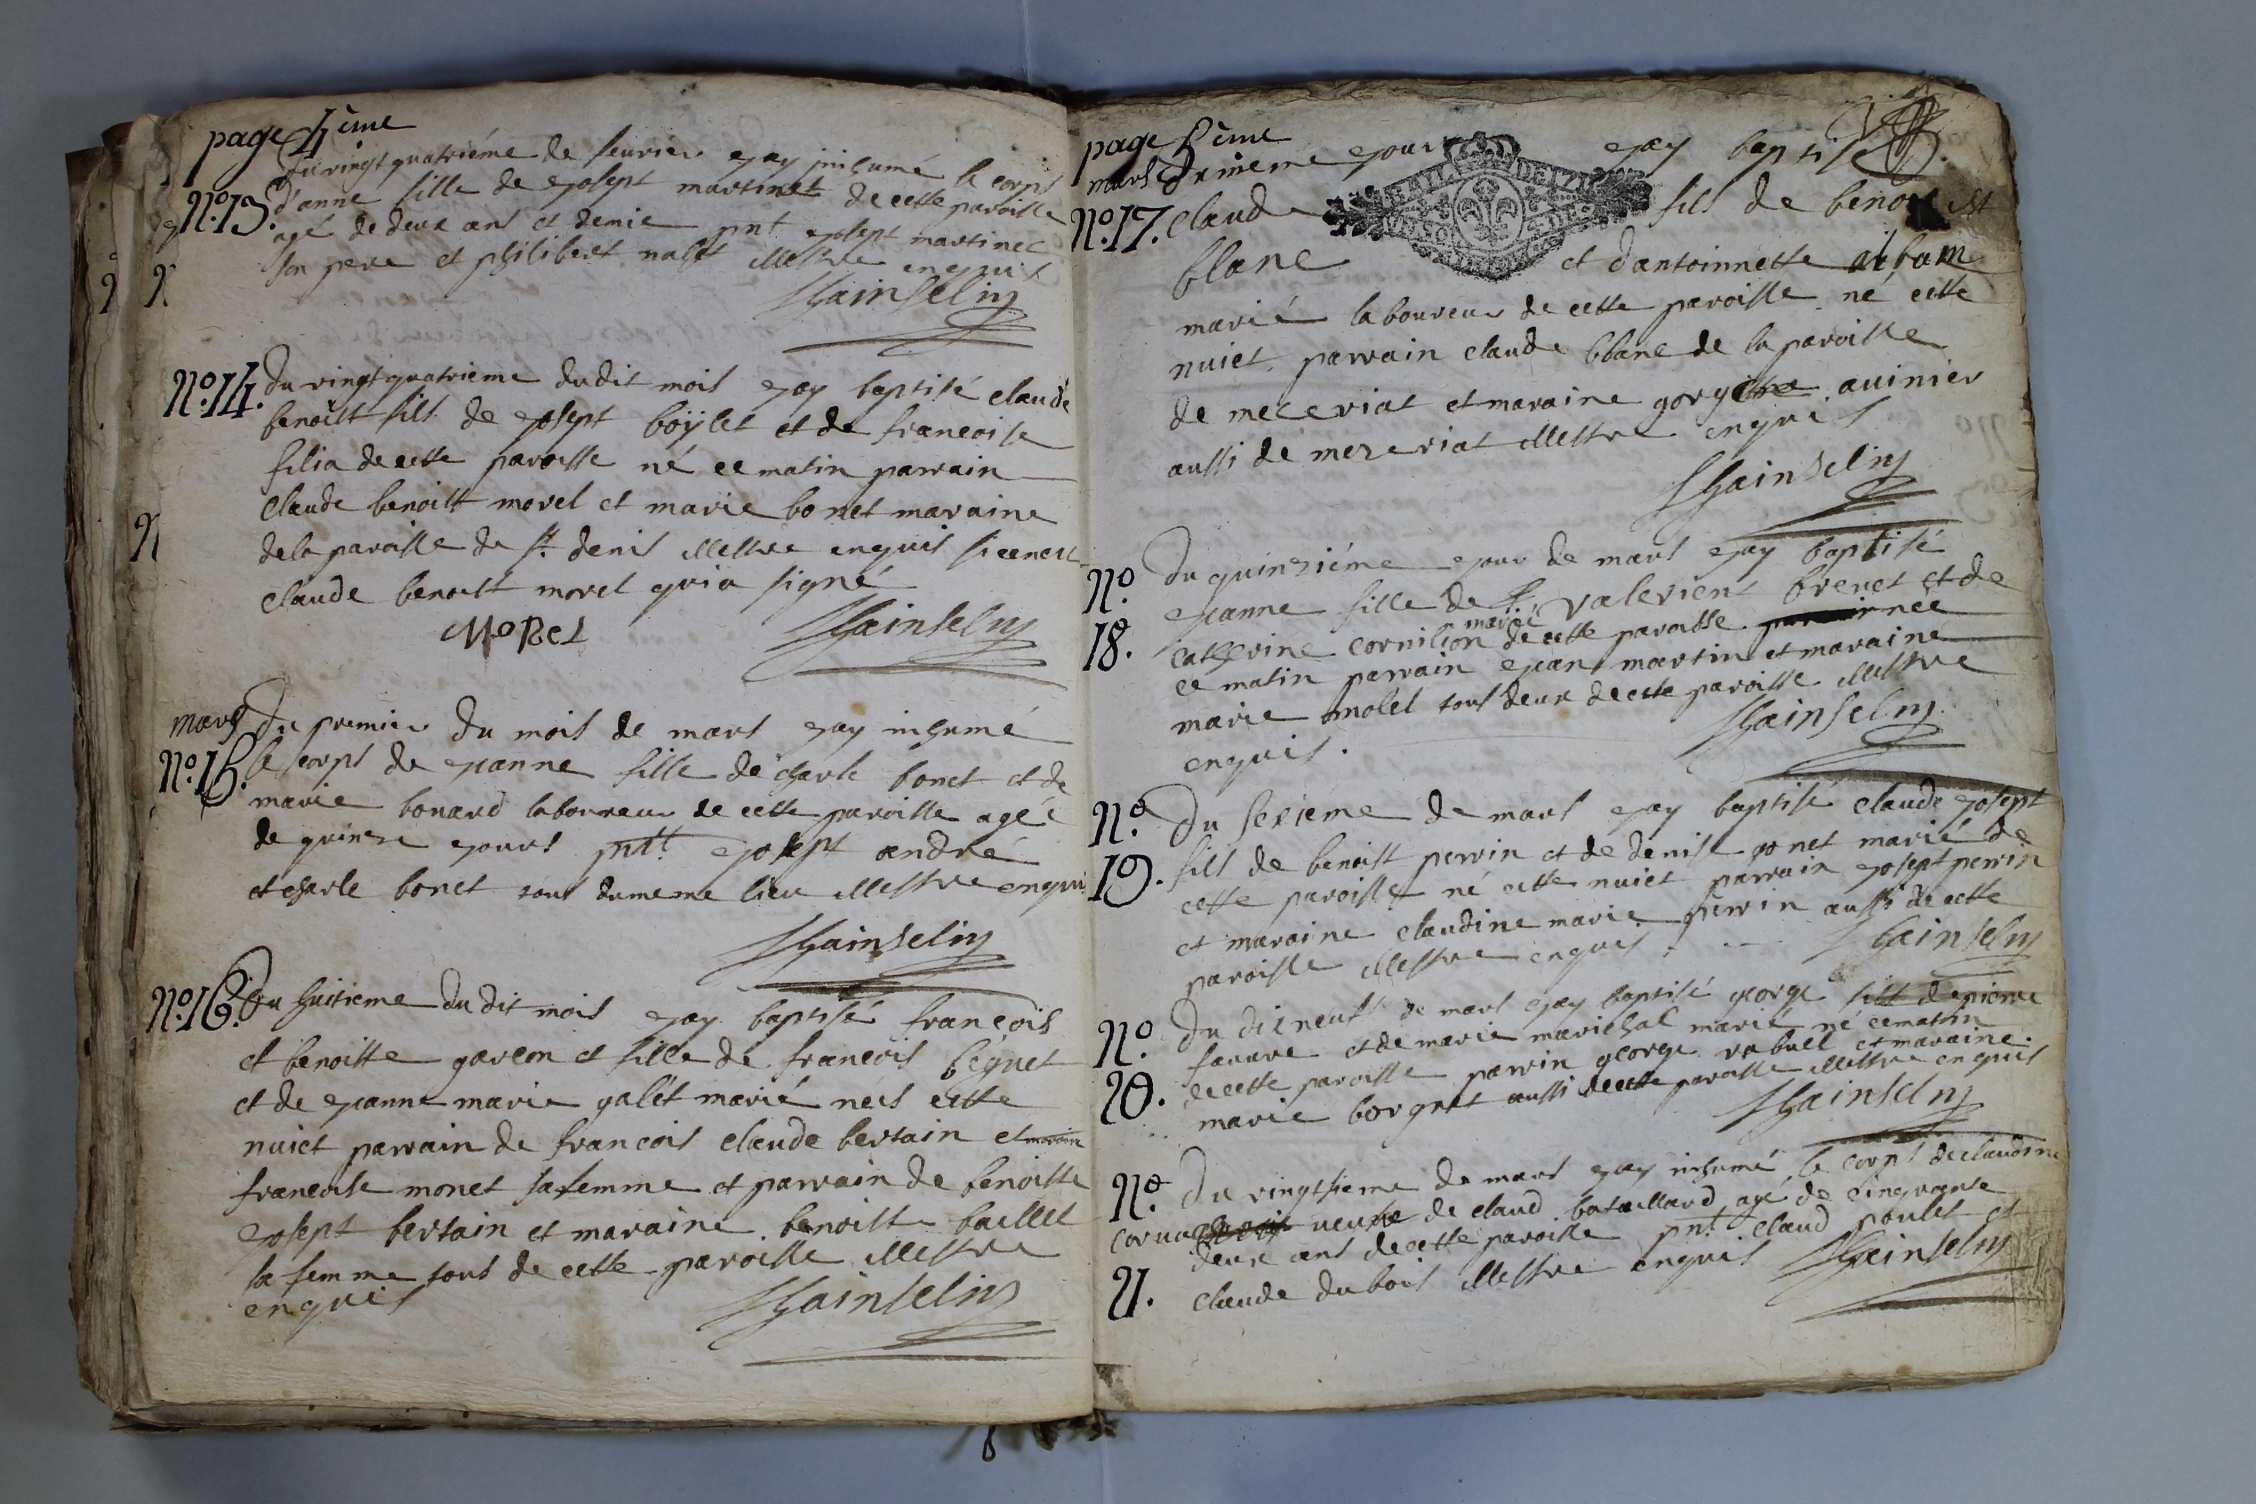 page 4ème
du vingt quatriéme de feurier j'ay inhumé le corps
No. 13. d'anne fille de joseph martinet de cette paroisse
agé de deux ans et demie pnt. joseph martinet
son pere et philibert nalet illettre enquis
Hainselin
No. 14. du vingt quatrieme du dit mois j'ay baptisé claude
benoist fils de joseph boÿlet et de francoise
filia de cette paroisse né ce matin parrain
claude benoist morel et marie bonet maraine
de la paroisse de st. denis illettre enquis si ce nest
claude benoist morel qui a signé
MoRel Hainselin
mars du premier du mois de mars j'ay inhumé
No. 15. le corps de jeanne fille de charle bonet et de
marie bonard laboureur de cette paroisse agée
de quinze jours pntt. joseph andré
et charle bonet tous du meme lieu illettre enquis
Hainselin
No. 16. du huitieme du dit mois j'ay baptisé françois
et benoitte garcon et fille de francois béguet
et de jeanne marie galet marié nées cette
nuict parrain de francois claude bertain et
francoise monet sa femme et parrain de benoitte
joseph bertain et maraine benoitte baillet
sa femme tous de cette paroisse illettre
enquis Hainselin
page 5ème
mars du meme jour j'ay baptisé
No. 17. claude fils de benoist
blanc et d'antoinnette
marié laboureur de cette paroisse né cette
nuict parrain claude blanc de la paroisse
de mezeriat et maraine gorgette auinier
aussi de mezeriat illettre enquis
Hainselin
No. 18. du quinziéme jour de mars j'ay baptisé
jeanne fille de valerient breuet et de
catherine cornilion marié de cette paroisse née
ce matin parrain jean martin et maraine
marie molel tous deux de cette paroisse illettre
enquis. Hainselin
No. 19. du sexieme de mars j'ay baptisé claude joseph
fils de benoist perrin et de denise gonet marié de
cette paroisse né cette nuict parrain joseph perrin
et maraine claudine marie perrin aussi de cette
paroisse illettre enquis. Hainselin
No. 20. du dix neuf de mars j'ay baptisé george fils de pierre
faure et de marie marichal marié né ce matin
de cette paroisse parrin george rabuel et maraine
marie borgnet aussi de cette paroisse illettre enquis
Hainselin
No. 21. du vingtieme de mars j'ay inhumé le corps de claudine
veuve de claud bataillard agé de cinquante
deux ans de cette paroisse pnt. claud poulet et
claude dubois illettre enquis Hainselin